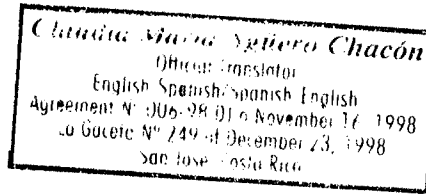 Claudia María Ygüero Chacón
Official Translator
English Spanish/Spanish English
Agreement Nº 006-98 November 16, 1998
La Gaceta Nº 249 of December 23, 1998
San José Costa Rica